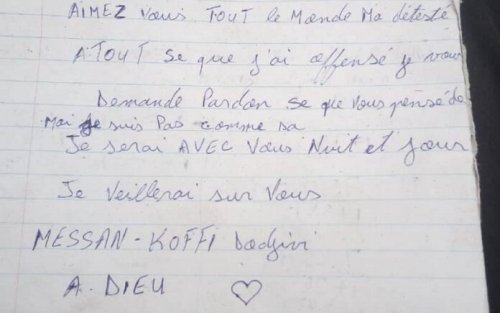 AIMEZ Vous TOUT le Monde Ma détesté
A TOUT se que j'ai offensé je vous
Demande Pardon se que vous pensé de
Moi je suis Pas comme sa
Je serai AVEC Vous Nuit et jour
Je Veillerai sur Vous
MESSAN-KOFFI Dodjivi
A. DIEU